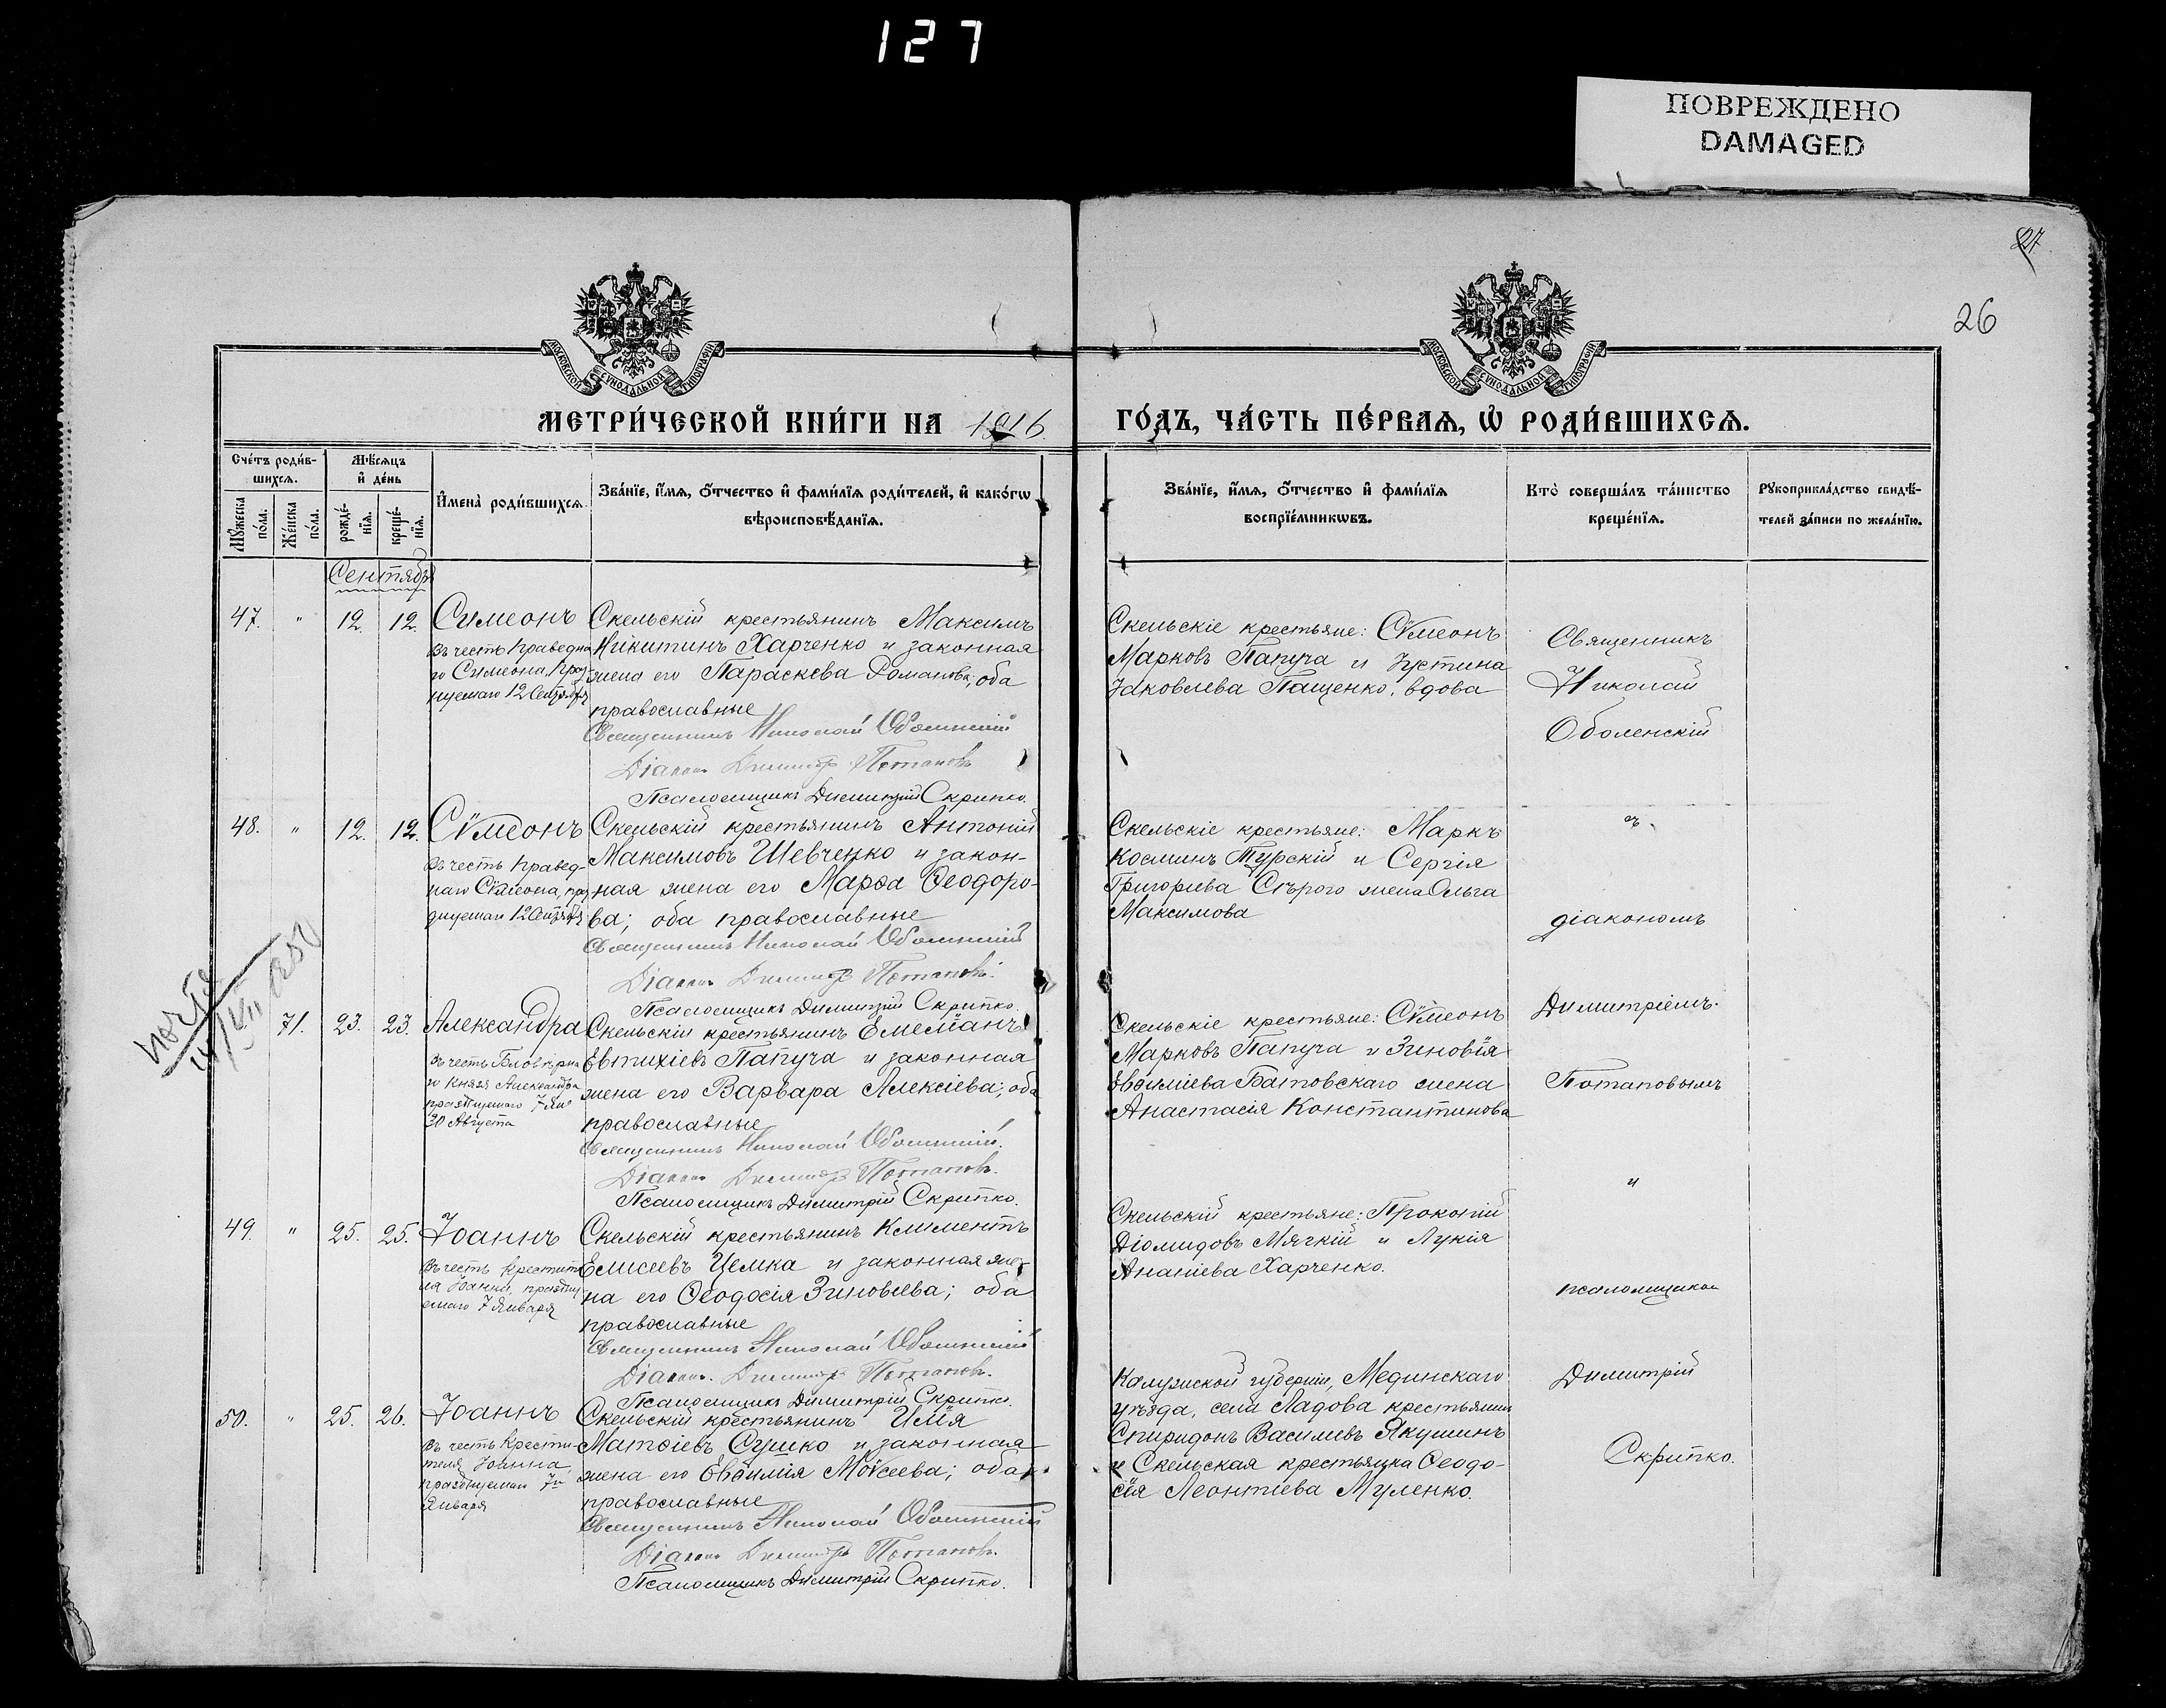 127
ПОВРЕЖДЕНО
DAMAGED
27
26
МОСКОВСКОЙ СѴНОДАЛЬНОЙ ТИПОГРАФІИ
МОСКОВСКОЙ СѴНОДАЛЬНОЙ ТИПОГРАФІИ
МЕТРИ́ЧЕСКОЙ КНИ́ГИ НА 1916 ГО́ДЪ, ЧА́СТЬ ПЕ́РВАѦ, Ѡ҆ РОДИ́ВШИХСѦ.
Сче́тъ роди́в-
шихсѧ.
Мꙋ́жеска по́ла.
Же́нска по́ла.
Мѣ́сѧцъ
и҆ де́нь
рожде́-
нїѧ.
креще́-
нїѧ.
И҆мена̀ роди́вшихсѧ
Зва́нїе, и҆́мѧ, ѻ҆́тчество и҆ фами́лїѧ роди́телей, и҆ како́гѡ
вѣроисповѣ́данїѧ.
Зва́нїе, и҆́мѧ, ѻ҆́тчество и҆ фами́лїѧ
воспрїе́мникѡвъ.
Кто̀ соверша́лъ та́инство
креще́нїѧ.
Рꙋкоприкла́дство свидѣ́-
телей за́писи по жела́нїю.
Сентябрь
47. " 12. 12.
Симеонъ
въ честь Праведна
го Симеона, праз
нуемаго 12 Сентября
Скельскій крестьянинъ Максимъ
Никитинъ Харченко и законная
жена его Параскева Романова, оба
православные
Священникъ Николай Оболенскій
Діаконъ Димитрій Потаповъ
Псаломщикъ Димитрій Скрипко.
Скельскіе крестьяне: Сѵмеонъ
Марковъ Папуча и Іустина
Іаковлева Пащенко, вдова
Священникъ
Николай
Оболенскій
48. " 12. 12.
Сѵмеонъ
въ честь Правед-
наго Сѵмеона, праз
днуемаго 12 Сентября
Скельскій крестьянинъ Антоній
Максимовъ Шевченко и закон-
ная жена его Марѳа Ѳеодоро-
ва; оба православные
Священникъ Николай Оболенскій
Діаконъ Димитрій Потаповъ.
Псаломщикъ Димитрій Скрипко.
Скельскіе крестьяне: Маркъ
Косминъ Турскій и Сергія
Григорьева Сѣрого жена Ольга
Максимова
съ
діакономъ
71. 23. 23.
Александра
въ честь Благовѣрна
го Князя Александра
празднуемаго
30 Августа
Скельскій крестьянинъ Емеліанъ
Евтихіевъ Папуча и законная
жена его Варвара Алексіева; оба
православные
Священникъ Николай Оболенскій.
Діаконъ Димитрій Потаповъ.
Псаломщикъ Димитрій Скрипко.
Скельскіе крестьяне: Сѵмеонъ
Марковъ Папуча и Зиновія
Евѳиміева Батовскаго жена
Анастасія Константинова
Димитріемъ
Потаповымъ
и
49. " 25. 25.
Іоаннъ
въ честь Крестите
ля Іоанна, праздну
емаго 7 Января
Скельскій крестьянинъ Климентъ
Елисеевъ Цемка и законная же-
на его Ѳеодосія Зиновьева; оба
православные
Священникъ Николай Оболенскій
Діаконъ Димитрій Потаповъ.
Псаломщикъ Димитрій Скрипко.
Скельскій крестьяне: Прокопій
Діомидовъ Мягкій и Лукія
Ананіева Харченко.
псаломщикомъ
50. " 25. 26.
Іоаннъ
въ честь Крести-
теля Іоанна
празднуемаго 7го
Января
Скельскій крестьянинъ Илія
Матѳіевъ Сушко и законная
жена его Евѳимія Моѵсеева; оба
православные
Священникъ Николай Оболенскій
Діаконъ Димитрій Потаповъ.
Псаломщикъ Димитрій Скрипко.
Калужской губерніи, Мединскаго
уѣзда, села Ладова крестьянинъ
Спиридонъ Васильевъ Якушинъ
и Скельская крестьянка Ѳеодо-
сія Леонтіева Муленко.
Димитрій
Скрипко.